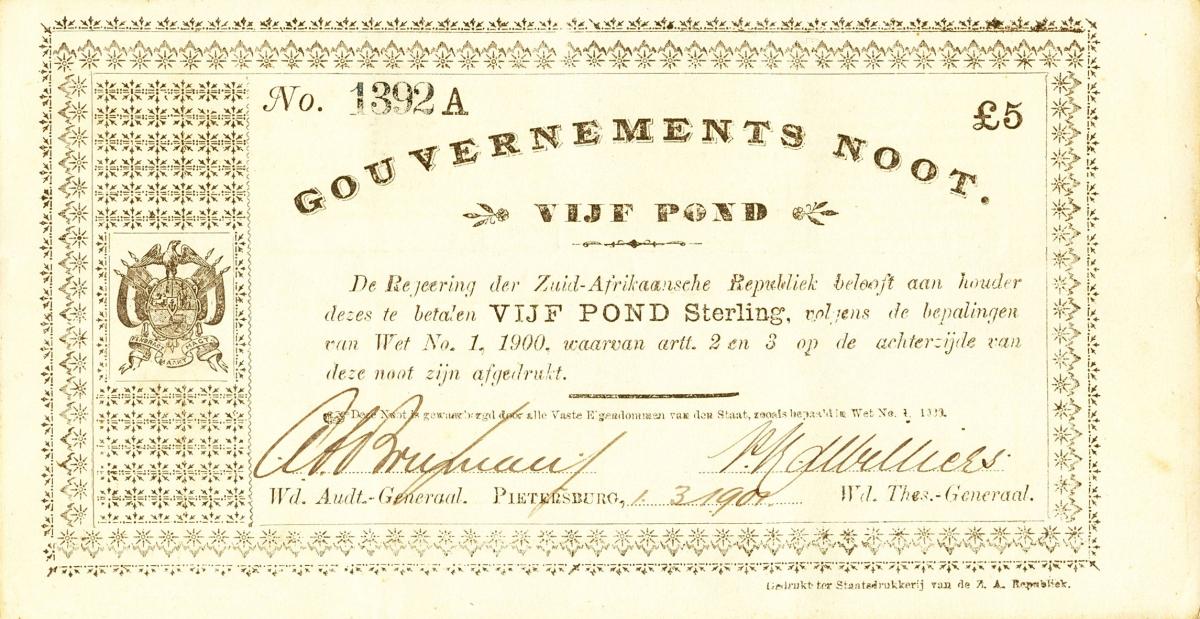 No. 1392 A
£5
GOUVERNEMENTS NOOT.
VIJF POND
De Regeering der Zuid-Afrikaansche Republiek belooft aan houder
dezes te betalen VIJF POND Sterling, volgens de bepalingen
van Wet No. 1, 1900, waarvan artt. 2 en 3 op de achterzijde van
deze noot zijn afgedrukt.
Deze Noot is gewaarborgd door alle Vaste Eigendommen van den Staat, zooals bepaald in Wet No. 1, 1900.
Wd. Audt.-Generaal. PIETERSBURG, 1. 3. 1901. Wd. Thes.-Generaal.
EENDRAGT MAAKT MAGT
Gedrukt ter Staatsdrukkerij van de Z. A. Republiek.